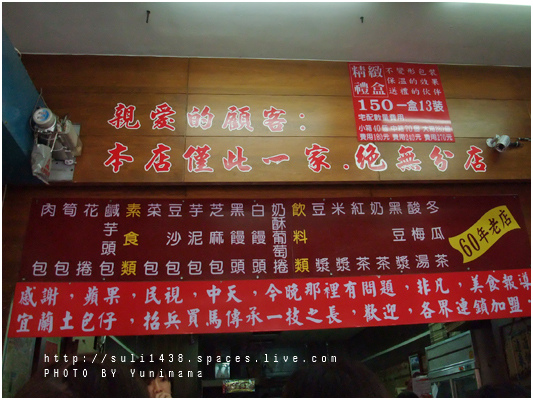 精緻禮盒
不變形包裝
保溫的效果
送禮的伙伴
150一盒13裝
宅配數量費用
親愛的顧客:
本店僅此一家.絕無分店
肉包
筍包
花捲
鹹芋頭包
素食類
菜包
豆沙包
芋泥包
芝麻包
黑饅頭
白饅頭
奶酥葡萄捲
飲料類
豆漿
米漿
紅茶
奶茶
黑豆漿
酸梅湯
冬瓜茶
60年老店
感謝,蘋果,民視,中天,今晚那裡有問題,非凡,美食報導
宜蘭土包仔,招兵買馬傳承一技之長,歡迎,各界連鎖加盟.
http://suli1438.spaces.live.com/
PHOTO BY Yunimama